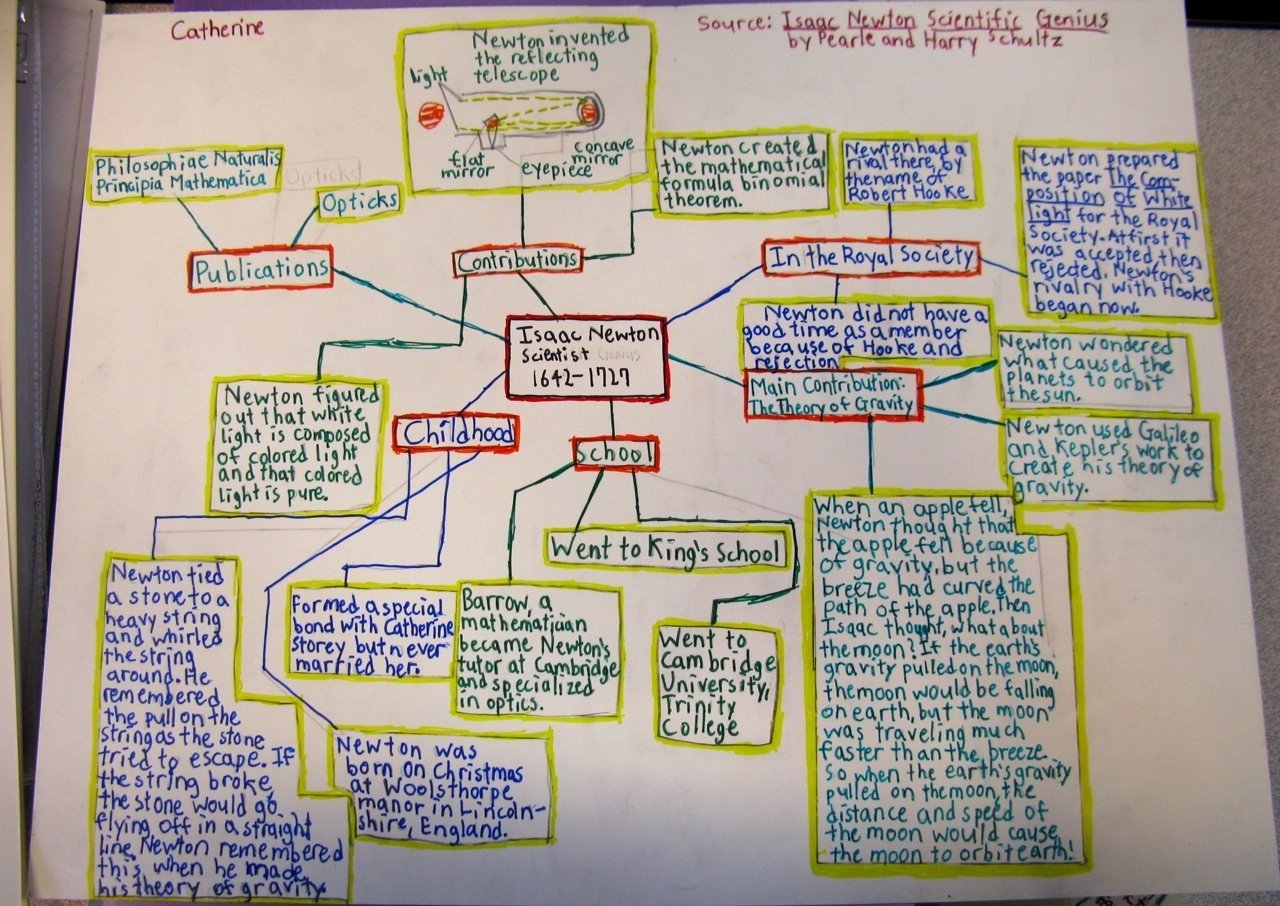 Catherine
Source: Isaac Newton Scientific Genius
by Pearle and Harry Schultz
Newton invented
the reflecting
telescope
light
flat
mirror
eyepiece
concave
mirror
Philosophiae Naturalis
Principia Mathematica
Opticks
Opticks
Publications
Contributions
Newton created
the mathematical
formula binomial
theorem.
Newton had a
rival there, by
the name of
Robert Hooke
In the Royal Society
Newton prepared
the paper The Com-
position of White
light for the Royal
Society. At first it
was accepted then
rejected. Newton's
rivalry with Hooke
began now.
Newton did not have a
good time as a member
because of Hooke and
rejection
Isaac Newton
Scientist Genius
1642-1727
Main Contribution:
The Theory of Gravity
Newton wondered
what caused the
planets to orbit
the sun.
Newton used Galileo
and Kepler's work to
create his theory of
gravity.
When an apple fell,
Newton thought that
the apple fell because
of gravity, but the
breeze had curved the
path of the apple. Then
Isaac thought, what about
the moon? If the earth's
gravity pulled on the moon,
the moon would be falling
on earth, but the moon
was traveling much
faster than the breeze.
So when the earth's gravity
pulled on the moon, the
distance and speed of
the moon would cause
the moon to orbit earth!
Newton figured
out that white
light is composed
of colored light
and that colored
light is pure.
Childhood
School
Newton tied
a stone to a
heavy string
and whirled
the string
around. He
remembered
the pull on the
string as the stone
tried to escape. If
the string broke,
the stone would go
flying off in a straight
line. Newton remembered
this when he made
his theory of gravity.
Formed a special
bond with Catherine
Storey but never
married her.
Newton was
born on Christmas
at Woolsthorpe
manor in Lincoln-
shire, England.
Barrow, a
mathematician
became Newton's
tutor at Cambridge
and specialized
in optics.
Went to King's School
Went to
Cambridge
University,
Trinity
College